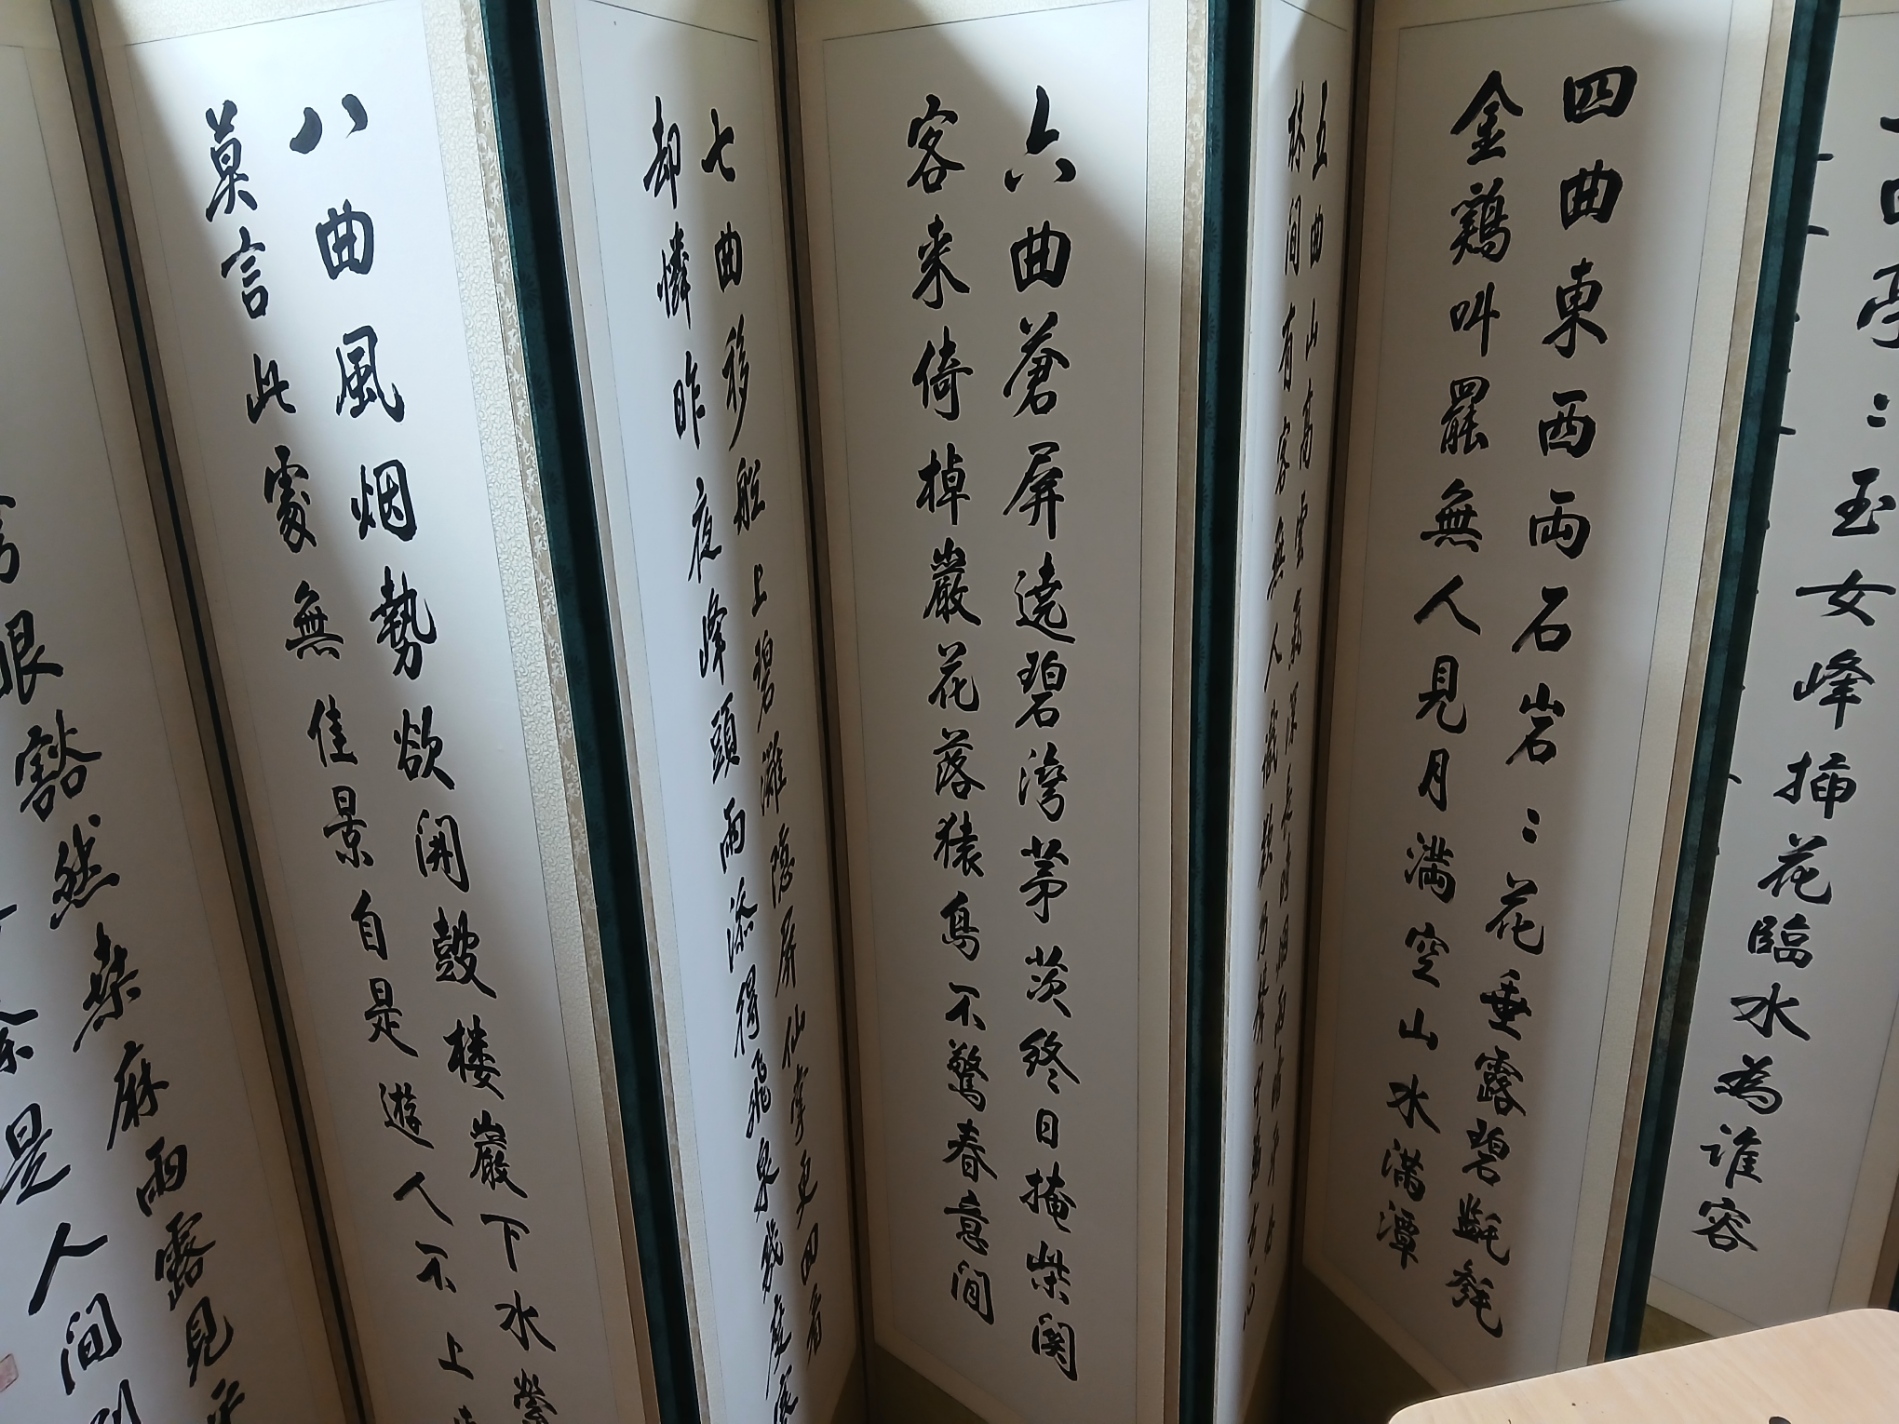 曲亭〻玉女峰挿花臨水為誰容
四曲東西両石岩〻花垂露碧㲯毿
金鶏叫罷無人見月満空山水満潭
五曲山高雲氣深長時烟雨暗平
林間有客無人識
六曲蒼屏遶碧湾茅茨終日掩柴関
客来倚棹巖花落猿鳥不驚春意間
七曲移船上碧灘隠屏仙掌更回看
却憐昨夜峰頭雨添得飛泉幾度寒
八曲風烟勢欲開皷楼巖下水縈
莫言此處無佳景自是遊人不上
眼豁然桑麻雨露見平
除是人間別